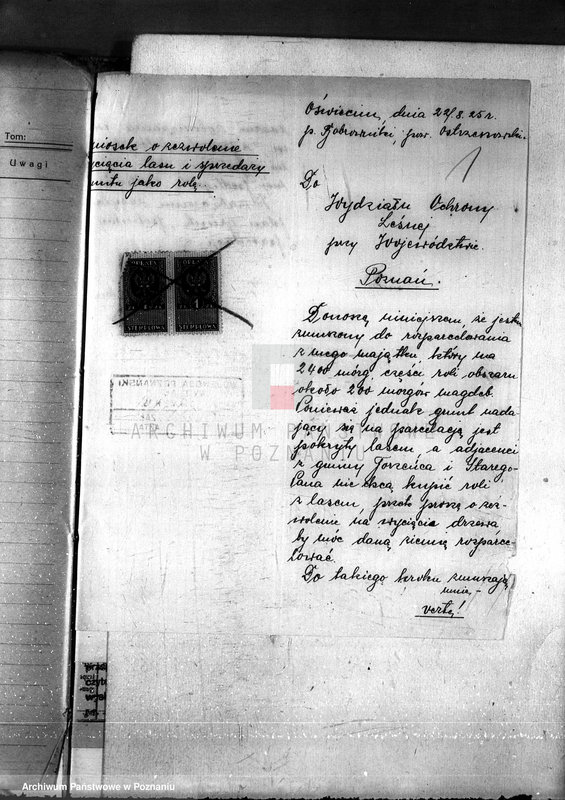 Tom:
Uwagi
Oświęcim, dnia 22/8. 25 r.
p. Bobrowniki, pow. Ostrzeszowski.
wniosek o zezwolenie
wycięcia lasu i sprzedaży
gruntu jako rolę.
Do
Wydziału Ochrony
Leśnej
przy Województwie
Poznań.
OPŁATA
STEMPLOWA
STEMPLOWA
Donoszę niniejszem że jestem
zmuszony do rozparcelowania
z mego majątku który ma
2400 mórg, części roli obszaru
około 200 mórgów magdeb.
Ponieważ jednak grunt nada
jący się na parcelację jest
pokryty lasem, a adjacenci
z gminy i Starego-
nie chcą kupić roli
z lasem, przeto proszę o zez-
wolenie na wycięcie drzewa
by móc daną ziemię rozparce-
lować.
Do takiego kroku zmuszają
mnie,-
verte!
ARCHIWUM PAŃSTWOWE
W POZNANIU
Archiwum Państwowe w Poznaniu
Archiwum Państwowe w Poznaniu